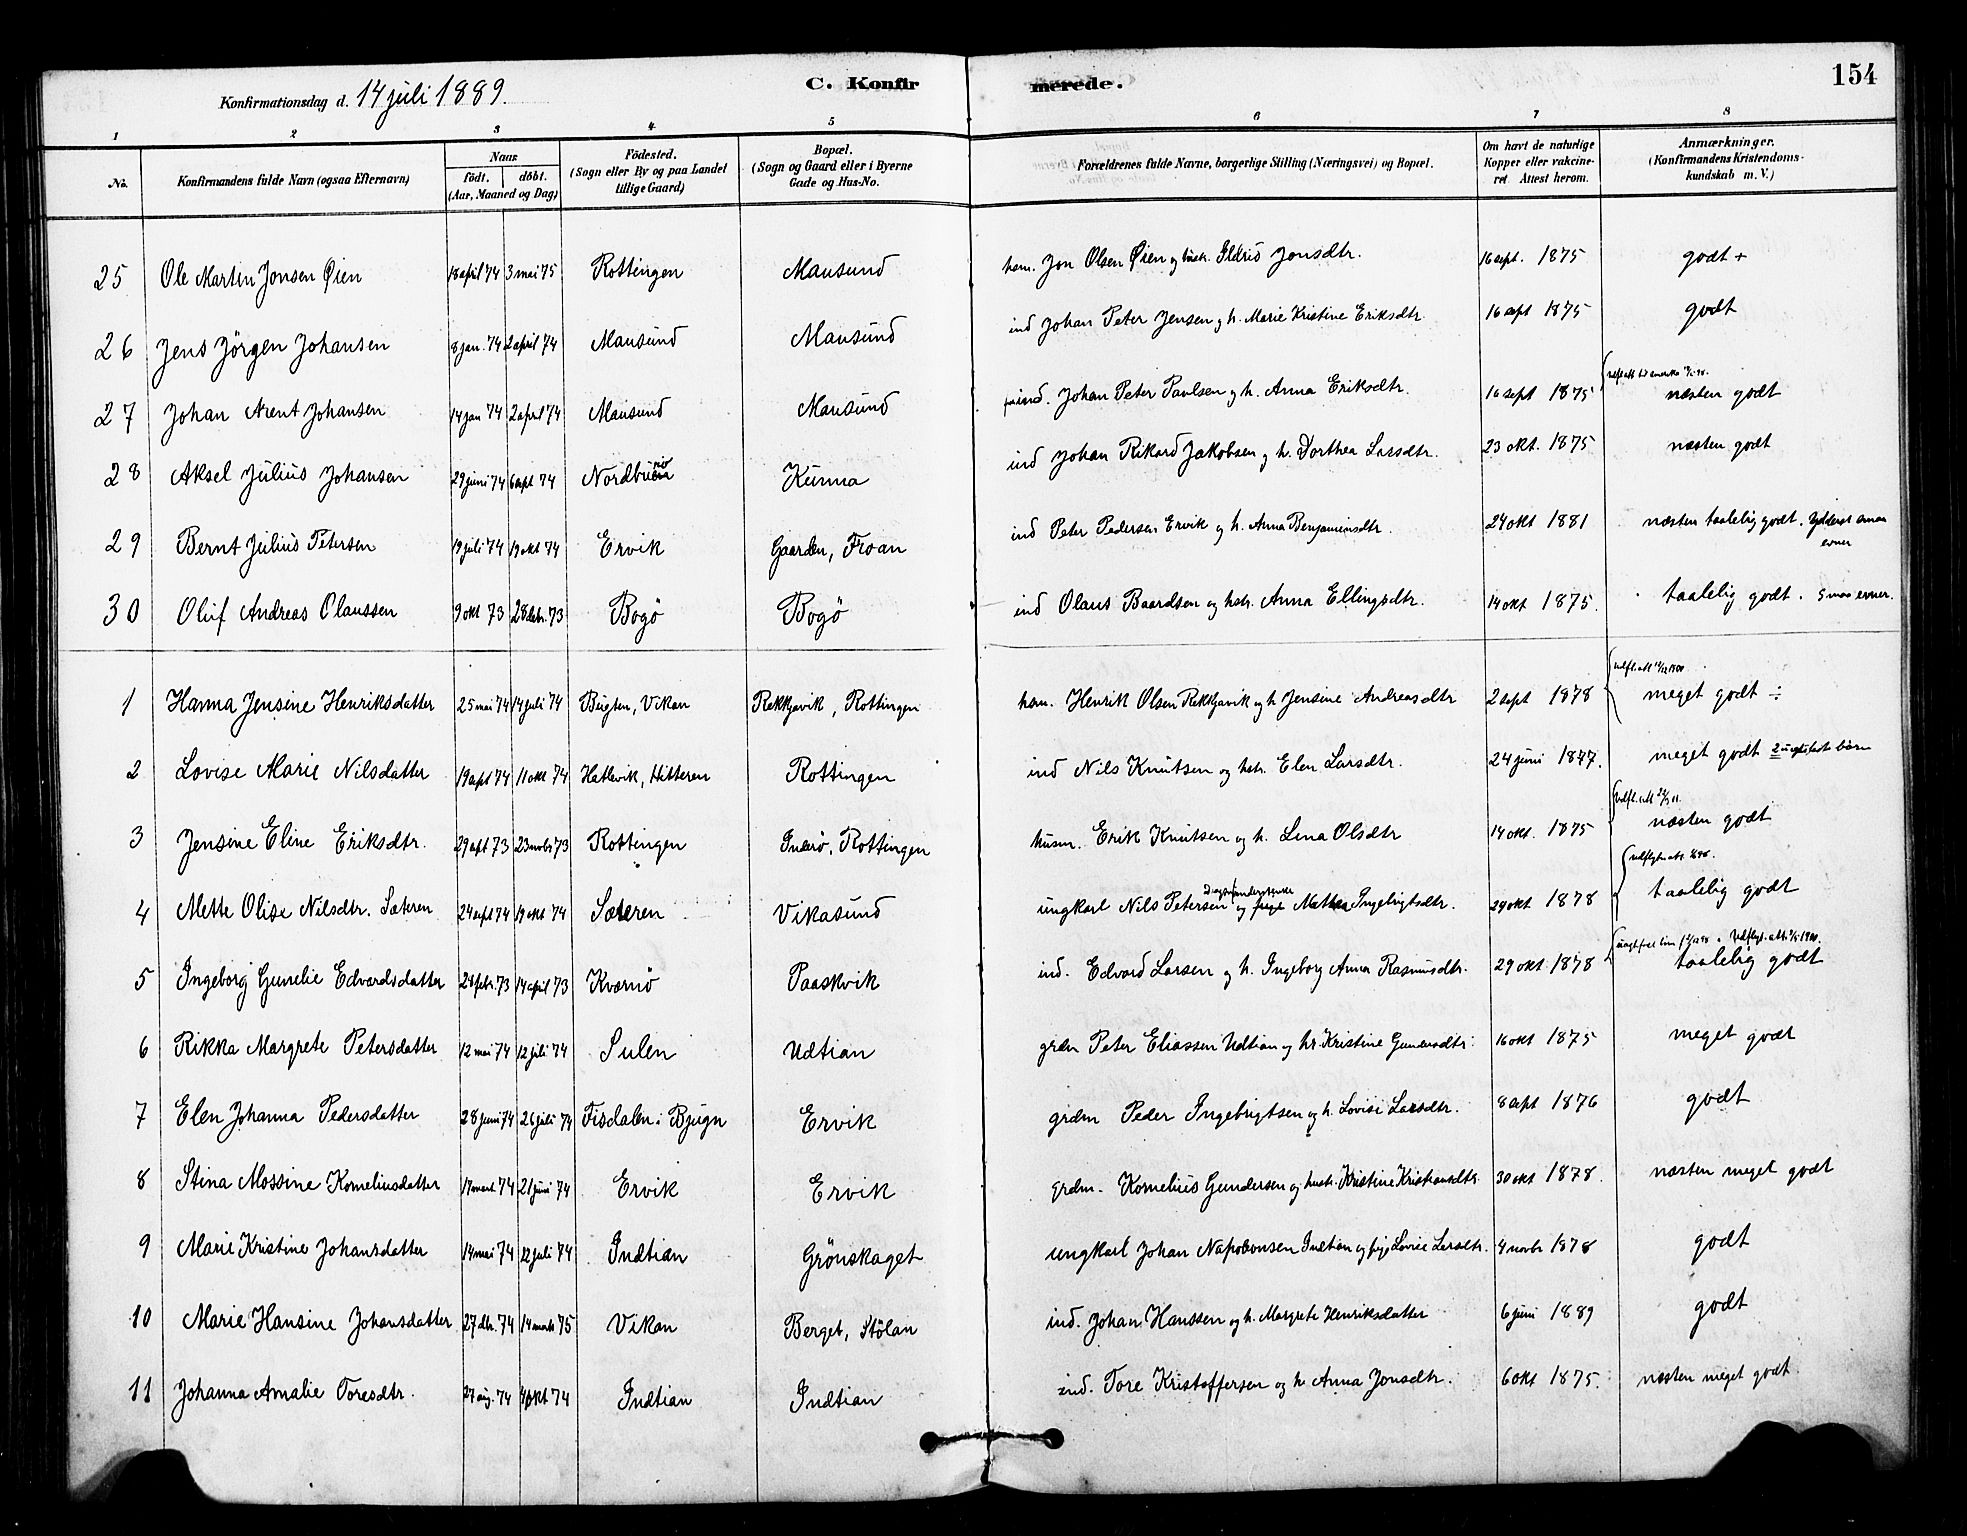 Konfirmationsdag d. 14 juli 1889.
C. Konfirmerede.
154
1 2 3 4 5 6 7 8
No. Konfirmandens fulde Navn (ogsaa Efternavn) Naar födt. döbt. (Aar, Maaned og Dag) Födested. (Sogn eller By og paa Landet tillige Gaard) Bopæl. (Sogn og Gaard eller i Byerne Gade og Hus-No. Forældrenes fulde Navne, borgerlige Stilling (Næringsvei) og Bopæl. Om havt de naturlige Kopper eller vakcineret. Attest herom. Anmærkninger. (Konfirmandens Kristendomskundskab m. V.)
25 Ole Martin Jonsen Øien 18 april 74 3 mai 75 Rottingen Mausund hsm. Jon Olsen Øien og hustr. Ildrid Jonsdtr. 16 sept. 1875 godt +
26 Jens Jörgen Johansen 8 jan. 74 2 april 74 Mausund Mausund ind Johan Peter Jensen og h. Marie Kristine Eriksdtr 16 sept 1875 godt
27 Johan Arent Johansen 14 jan 74 2 april 74 Mausund Mausund ind. Johan Peter Paulsen og h. Anna Eriksdtr. 16 sept 1875 næsten godt
28 Aksel Julius Johansen 29 juni 74 6 sept 74 Kunna ind Johan Rikard Jakobsen og h. Dorthea Larsdtr. 23 okt. 1875 næsten godt
29 Bernt Julius Petersen 19 juli 74 19 okt 74 Ervik Gaarden, Froan ind Peter Pedersen Ervik og h. Anna Benjaminsdtr. 24 okt 1881 næsten taalelig godt. Yderst smaa evner
30 Oluf Andreas Olaussen 9 okt 73 28 debr. 73 Bogö Bogö ind Olaus Baardsen og hstr. Anna Ellingsdtr. 14 okt 1875. taalelig godt. Smaa evner.
1 Hanna Jensine Henriksdatter 25 mai 74 14 juli 74 Burgten, Vikan Rekkjavik, Rottingen hsm. Henrik Olsen Rekkjavik og h Jensine Andreasdtr 2 sept 1878 meget godt ÷
2 Lovise Marie Nilsdatter 19 sept 74 11 okt 74 Hatlevik, Hitteren Rottingen ind Nils Knutsen og hstr. Elen Larsdtr. 24 juni 1877. meget godt
3 Jensine Eline Eriksdtr. 29 sept 73 23 nobr 73 Rottingen Inderö, Rottingen husm. Erik Knutsen og h. Lina Olsdtr 14 okt. 1875 næsten godt
4 Mette Olise Nilsdtr. Sæteren 24 sept 74 19 okt 74 Sæteren Vikasund ungkarl Nils Petersen og Ingebrigtsdtr. 29 okt 1878 taalelig godt
5 Ingeborg Gunelie Edvardsdatter 24 febr. 73 14 april 73 Kvarnö Paaskvik ind. Edvard Larsen og h. Ingeborg Anna Rasmusdtr. 29 okt 1878 taalelig godt
6 Rikka Margrete Petersdatter 12 mai 74 12 juli 74 Sulen Udtian grdm Peter Eliassen Udtian og hr. Kristine Gundersdtr. 16 okt 1875 meget godt
7 Elen Johanna Pedersdatter 28 juni 74 26 juli 74 Fisdalen i Bjugn Ervik grdm Peder Ingebrigtsen og h. Lovise Larsdtr. 8 sept 1876 godt
8 Stina Mossine Korneliusdatter 17 marts 74 21 juni 74 Ervik Ervik grdm. Kornelius Gundersen og hustr. Kristine Kristiansdtr. 30 okt 1878. næsten meget godt
9 Marie Kristine Johansdatter 14 mai 74 12 juli 74 Indtian Grönskaget ungkarl Johan Napoleonsen Indtian og pige Lovise Larsdtr. 4 novbr 1878 godt
10 Marie Hansine Johansdatter 27 dbr. 74 14 marts 75 Vikan Berget, Stölan ind. Johan Hanssen og h. Margrete Henriksdatter 6 juni 1889 godt
11 Johanna Amalie Toresdtr. 27 aug. 74 4 okt 74 Indtian Indtian ind. Tore Kristoffersen og h Anna Jonsdtr. 6 okt 1875. næsten meget godt